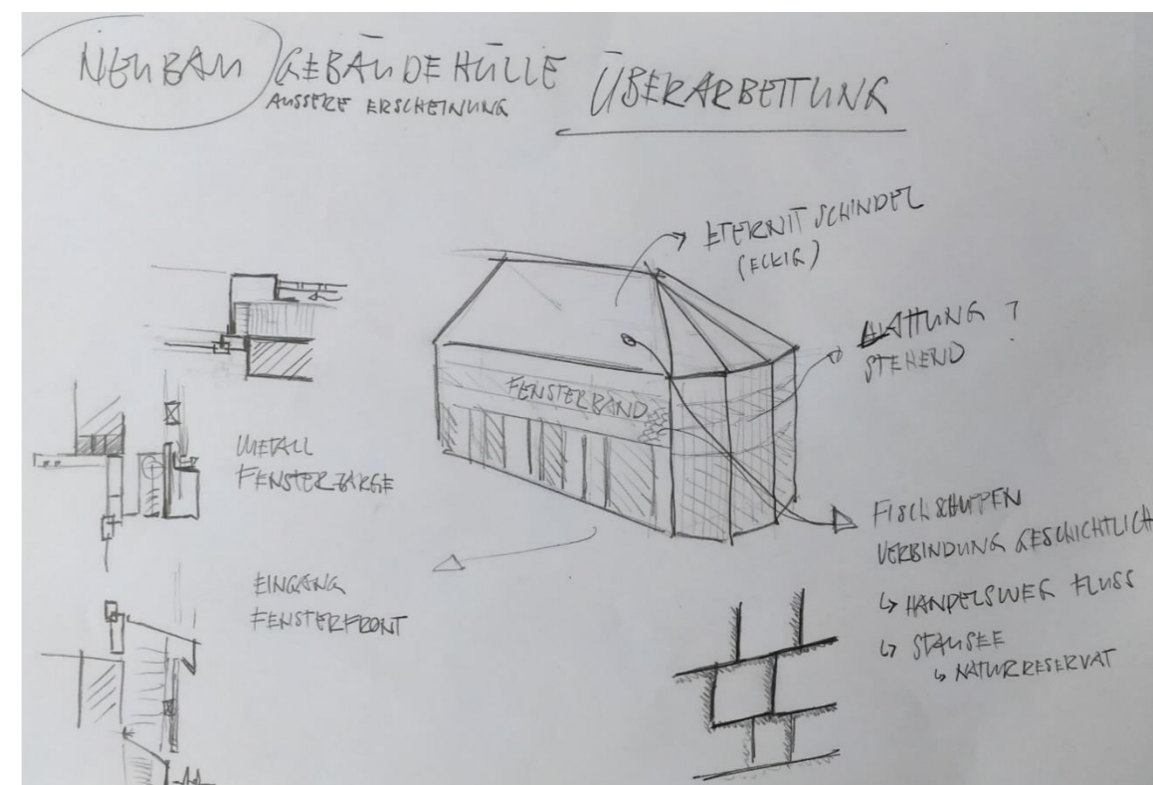 NEUBAU
GEBÄUDEHÜLLE
ÄUSSERE ERSCHEINUNG
ÜBERARBEITUNG
ETERNIT SCHINDEL
(ECKIG)
LATTUNG ?
STEHEND
FENSTERBAND
METALL
FENSTERZARGE
EINGANG
FENSTERFRONT
FISCHSCHUPPEN
VERBINDUNG GESCHICHTLICH
↳ HANDELSWEG FLUSS
↳ STAUSEE
↳ NATURRESERVAT